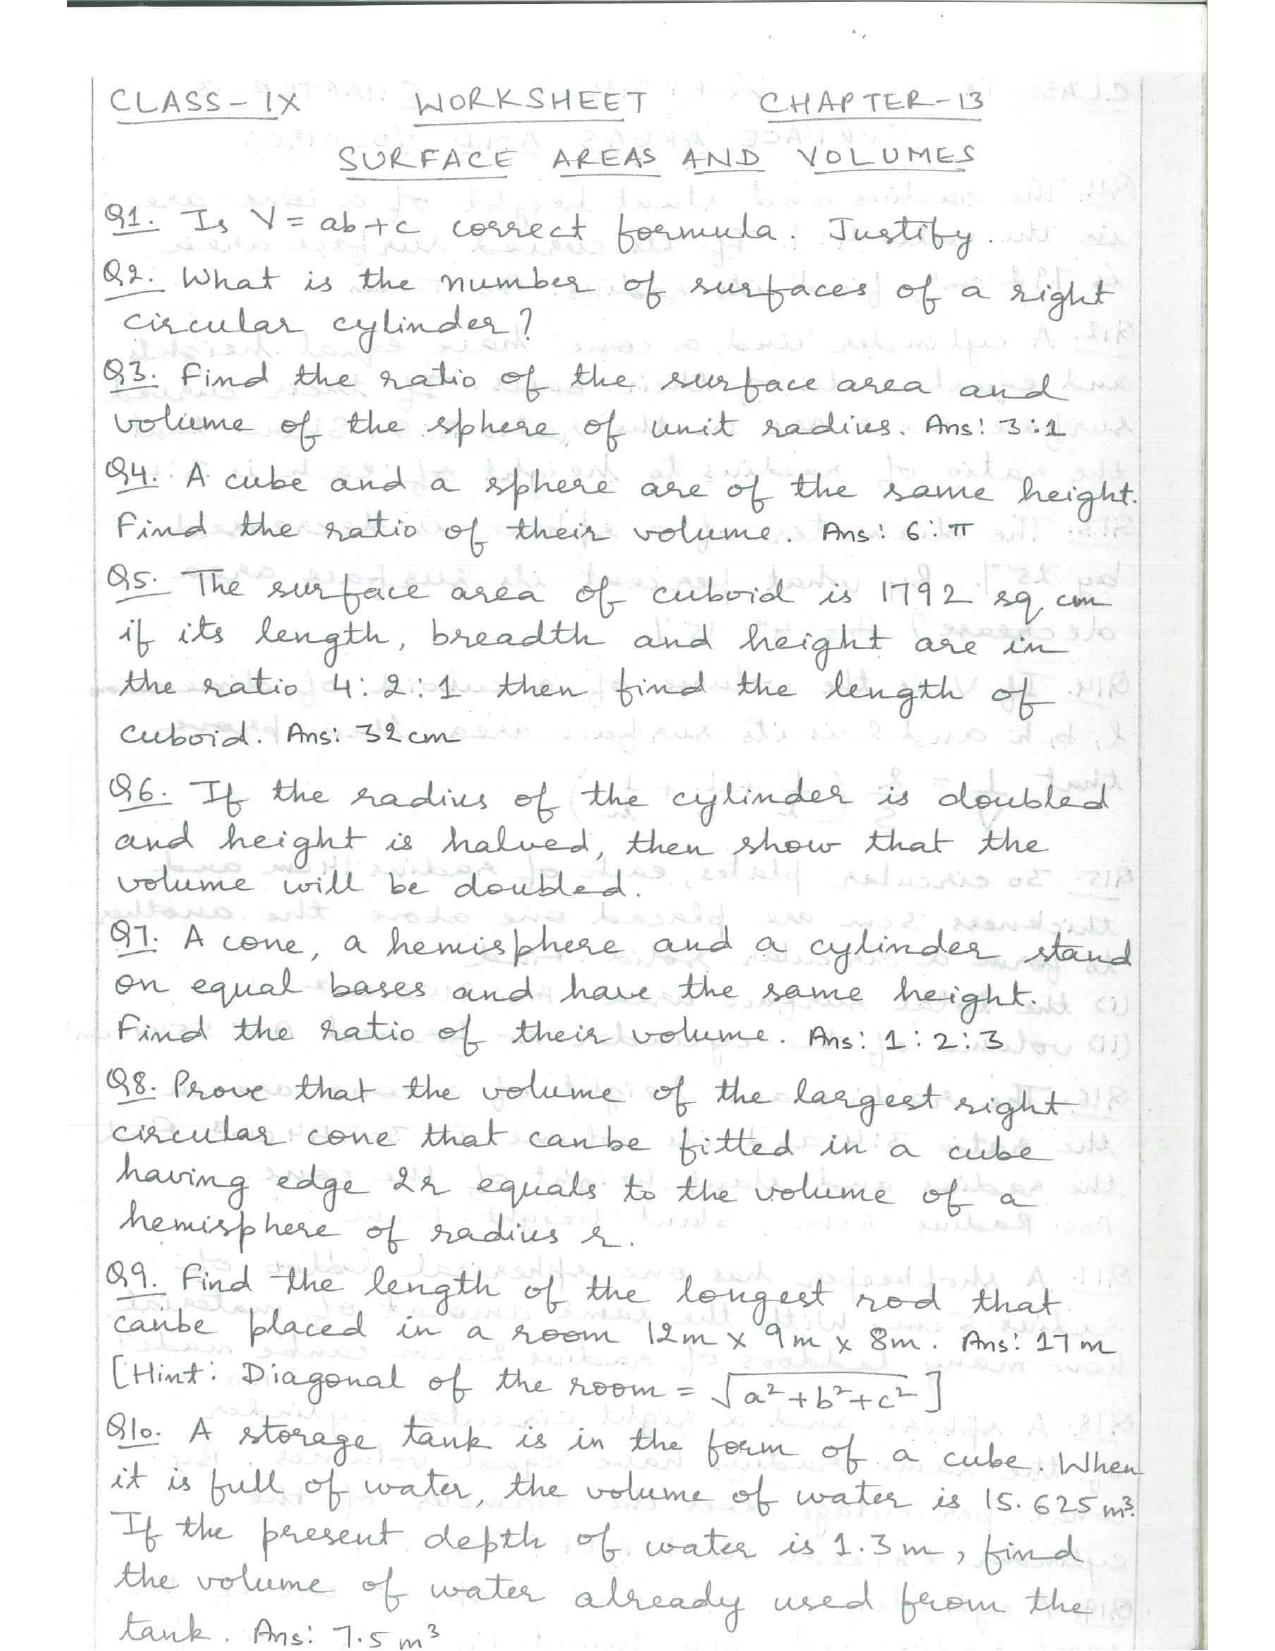 CLASS-IX WORKSHEET CHAPTER-13
SURFACE AREAS AND VOLUMES
Q1. Is V = ab+c correct formula. Justify.
Q2. What is the number of surfaces of a right
circular cylinder?
Q3. Find the ratio of the surface area and
volume of the sphere of unit radius. Ans: 3:1
Q4. A cube and a sphere are of the same height.
Find the ratio of their volume. Ans: 6:π
Q5. The surface area of cuboid is 1792 sq cm
if its length, breadth and height are in
the ratio 4:2:1 then find the length of
cuboid. Ans: 32cm
Q6. If the radius of the cylinder is doubled
and height is halved, then show that the
volume will be doubled.
Q7. A cone, a hemisphere and a cylinder stand
on equal bases and have the same height.
Find the ratio of their volume. Ans: 1:2:3
Q8. Prove that the volume of the largest right
circular cone that canbe fitted in a cube
having edge 2r equals to the volume of a
hemisphere of radius r.
Q9. Find the length of the longest rod that
canbe placed in a room 12m x 9m x 8m. Ans: 17m
[Hint: Diagonal of the room = √a²+b²+c²]
Q10. A storage tank is in the form of a cube. When
it is full of water, the volume of water is 15.625 m³.
If the present depth of water is 1.3m, find
the volume of water already used from the
tank. Ans: 7.5m³